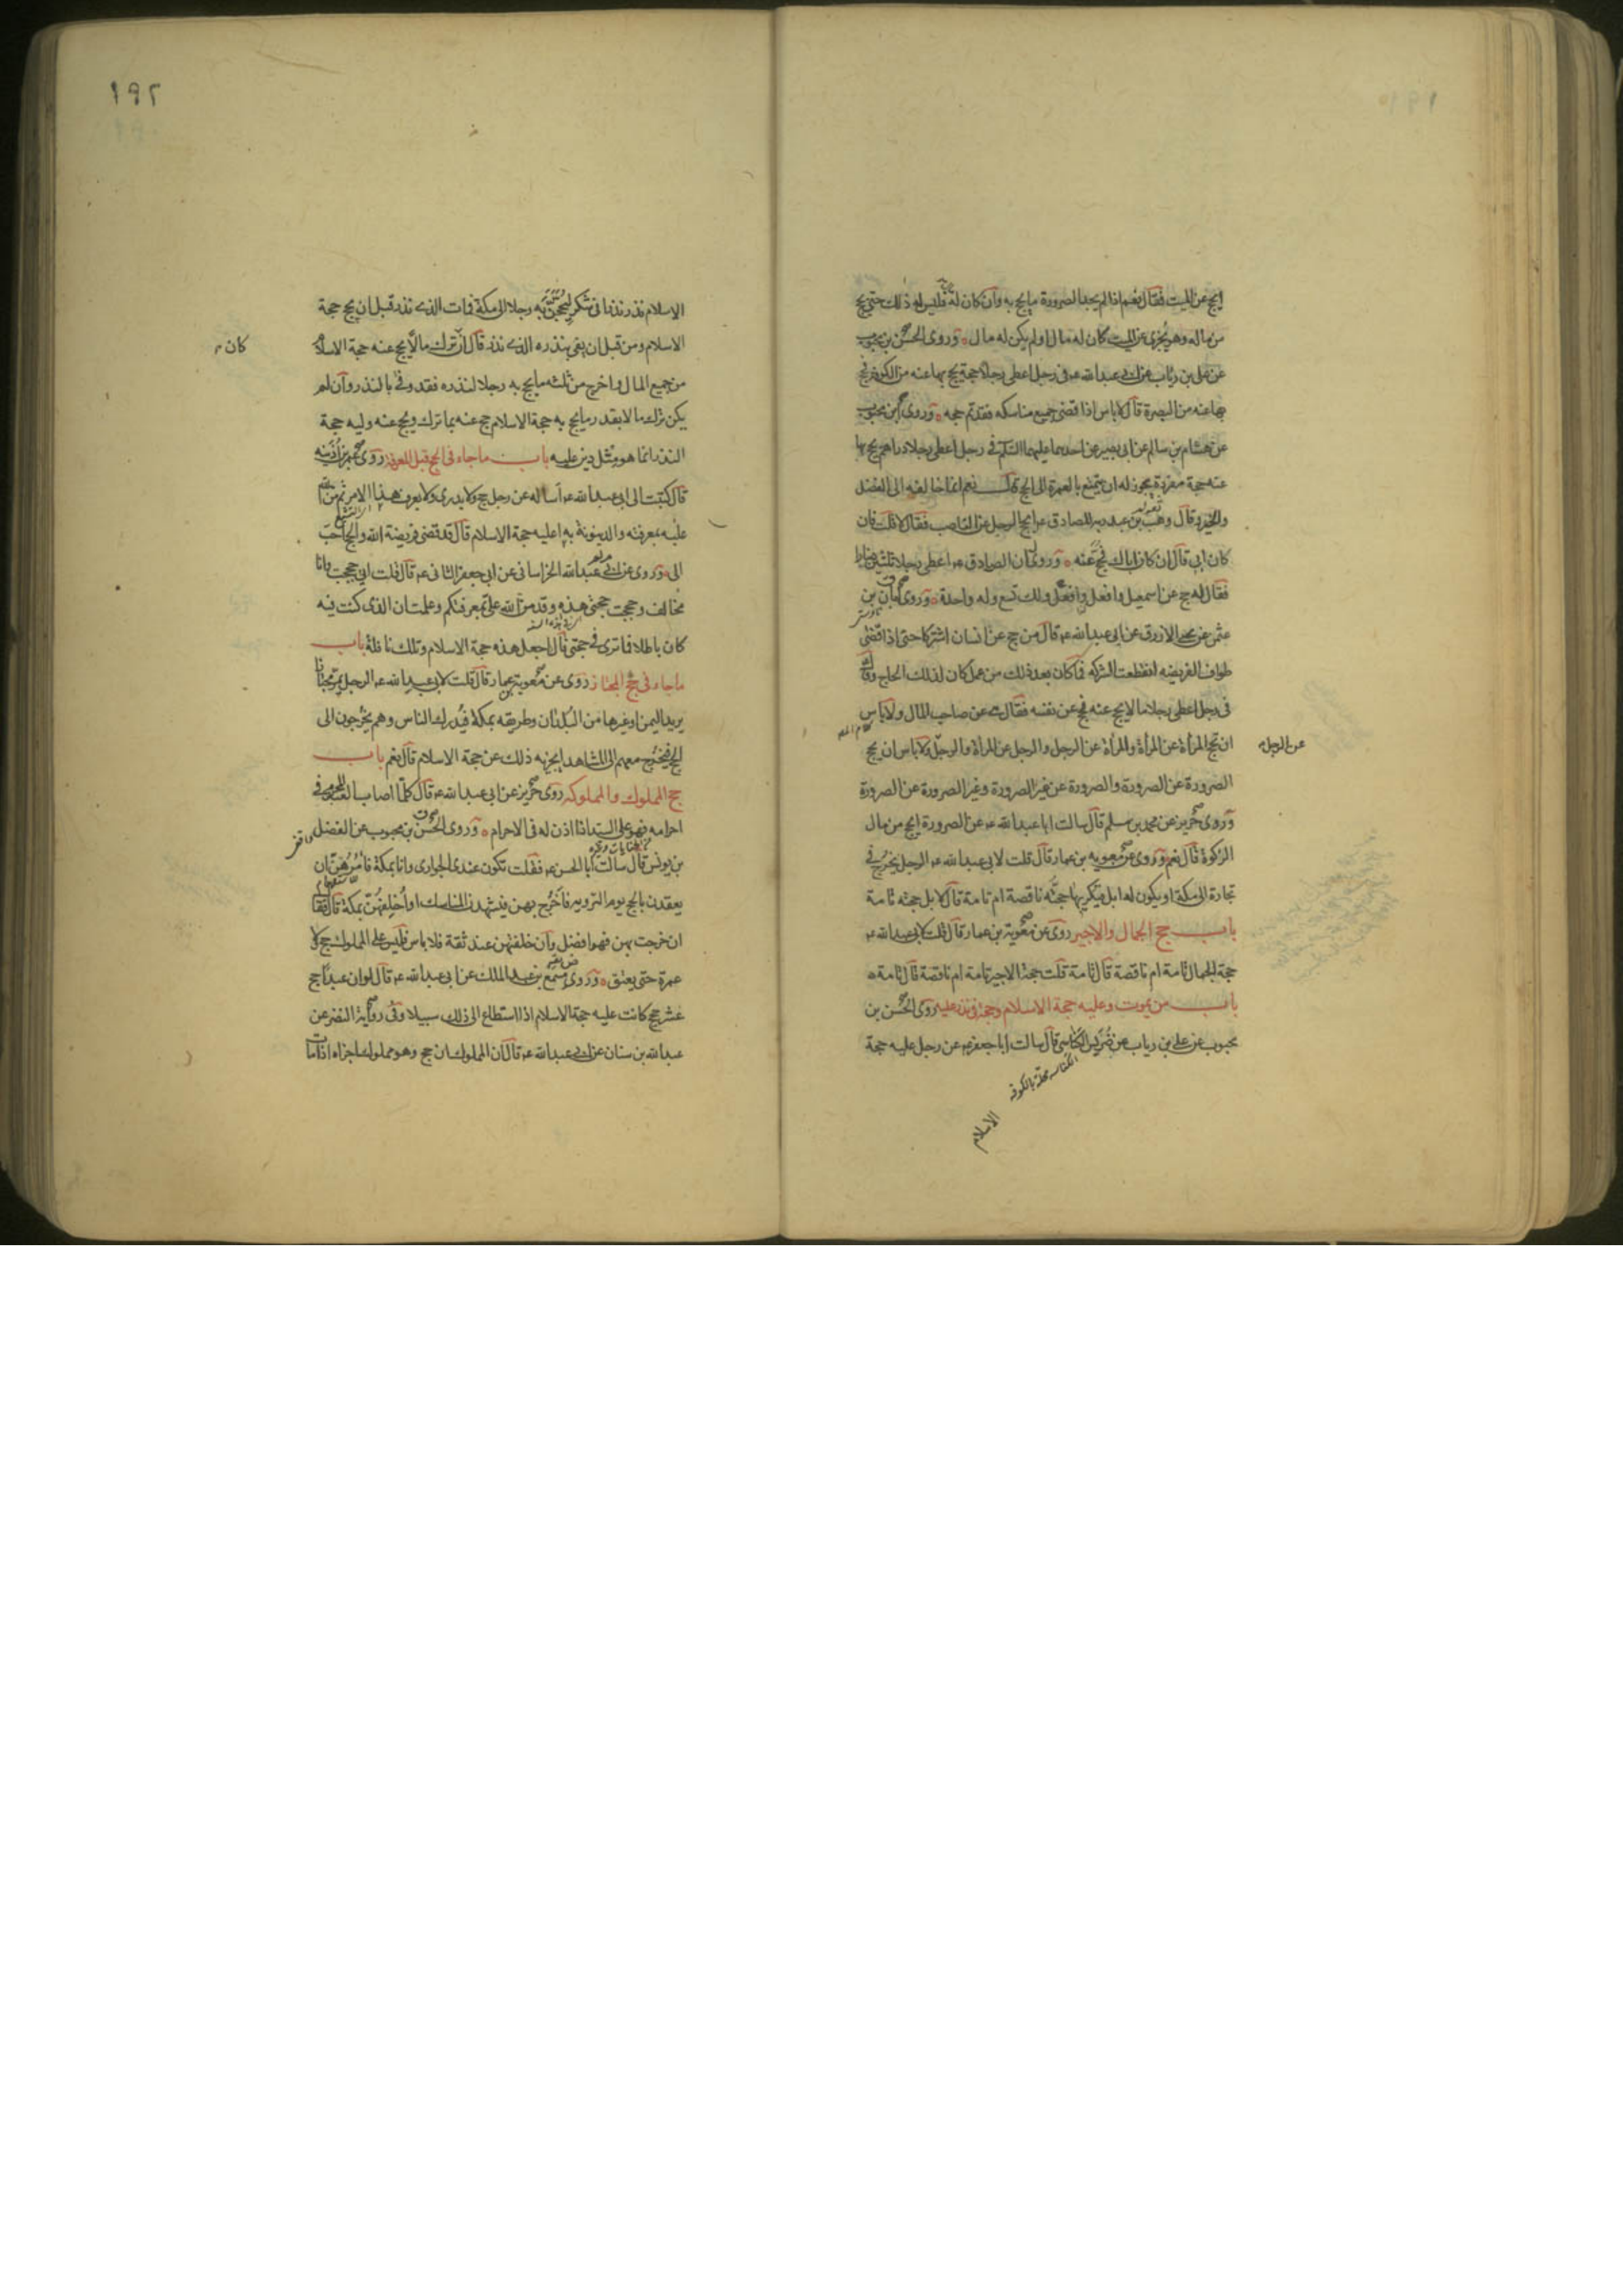 ١٩١
ايحج عن الميت فقال نعم اذا لم يجد الصرورة ما يحج به وان كان له فليس له ذلك حتى يحج
من ماله وهو يجزى عن الميت كان له مال او لم يكن له مال وروى الحسن بن محبوب
عن على بن رئاب عن ابى عبدالله ع فى رجل اعطى رجلا حجة يحج بها عنه من الكوفة فحج
بها عنه من البصرة قال لاباس اذا قضى جميع مناسكه فقد تم حجه وروى ابن محبوب
عن هشام بن سالم عن ابى بصير عن احدهما عليهما السلم فى رجل اعطى رجلا دراهم يحج بها
عنه حجة مفردة يجوز له ان يتمتع بالعمرة الى الحج قال نعم انما خالفه الى الفضل
والخير وقال وهب بن عبد ربه للصادق ع ايحج الرجل عن الناصب فقال لا قلت فان
كان ابى قال ان كان اباك فحج عنه وروى ان الصادق ع اعطى رجلا ثلثين دينارا
فقال له حج عن اسمعيل وافعل وافعل ولك تسع وله واحدة وروى ابان بن
عثمن عن يحيى الازرق عن ابى عبدالله ع قال من حج عن انسان اشتركا حتى اذا قضى
طواف الفريضه انقطعت الشركه فما كان بعد ذلك من عمل كان لذلك الحاج وقال
فى رجل اعطى رجلا مالا يحج عنه فحج عن نفسه فقال هى عن صاحب المال ولاباس
ان تحج المرأة عن المرأة والمرأة عن الرجل والرجل عن المرأة والرجل ولاباس ان يحج
عن الرجل
الصرورة عن الصرورة والصرورة عن غير الصرورة وغير الصرورة عن الصرورة
وروى حريز عن محمد بن مسلم قال سالت ابا عبدالله ع عن الصرورة ايحج من مال
الزكوة قال نعم وروى عن معويه بن عمار قال قلت لابى عبدالله ع الرجل يخرج فى
تجارة الى مكة او يكون له ابل فيكريها حجته ناقصة ام تامة قال لا بل حجته تامة
باب حج الجمال والاجير روى عن معوية بن عمار قال قلت لابى عبدالله ع
حجة الجمال تامة ام ناقصة قال تامة قلت حجة الاجير تامة ام ناقصة قال تامة
باب من يموت وعليه حجة الاسلام وحجة فى نذر عليه روى الحسن بن
محبوب عن على بن رياب عن ضريس الكناسى قال سالت ابا جعفر ع عن رجل عليه حجة
الكناسه محلة بالكوفه
الاسلام
١٩٢
الاسلام نذر نذرا فى شكر ليحجن به رجلا الى مكة فمات الذى نذر قبل ان يحج حجة
الاسلام ومن قبل ان يفى بنذره الذى نذر قال ان ترك مالا يحج عنه حجة الاسلام
كان
من جميع المال واخرج من ثلثه ما يحج به رجلا لنذره فقد وفى بالنذر وان لم
يكن ترك مالا بقدر ما يحج به حجة الاسلام حج عنه بما ترك ويحج عنه وليه حجة
النذر انما هو مثل دين عليه باب ما جاء فى الحج قبل المعرفة روى عمر بن اذينه
قال كتبت الى ابى عبدالله ع اساله عن رجل حج ولا يدرى ولا يعرف هذا الامر ثم من الله
عليه بمعرفته والدينونة به اعليه حجة الاسلام قال قد قضى فريضة الله والحج احب
الى وروى عن ابى عبدالله الخراسانى عن ابى جعفر الثانى ع قال قلت انى حججت وانا
مخالف وحججت حجتى هذه وقد من الله على بمعرفتكم وعلمت ان الذى كنت فيه
كان باطلا فما ترى فى حجتى قال اجعل هذه حجة الاسلام وتلك نافلة باب
ماجاء فى حج المجتاز روى عن معوية بن عمار قال قلت لابى عبدالله ع الرجل يمر مجتازا
يريد اليمن او غيرها من البلدان وطريقه بمكة فيدرك الناس وهم يخرجون الى
الحج فيخرج معهم الى المشاهد ايجزيه ذلك عن حجة الاسلام قال نعم باب
حج المملوك والمملوكه روى حريز عن ابى عبدالله ع قال كلما اصاب العبد المحرم فى
احرامه فهو على السيد اذا اذن له فى الاحرام وروى الحسن بن محبوب عن الفضل
بن يونس قال سالت ابا الحسن ع فقلت تكون عندى الجوارى وانا بمكة فامرهن ان
يعقدن بالحج يوم الترويه فاخرج بهن فيشهدن المناسك او اخلفهن بمكة قال فقال
ان خرجت بهن فهو افضل وان خلفتهن عند ثقة فلا باس فليس على المملوك حج ولا
عمرة حتى يعتق وروى مسمع بن عبد الملك عن ابى عبدالله ع قال لو ان عبدا حج
عشر حجج كانت عليه حجة الاسلام اذا استطاع الى ذلك سبيلا وفى رواية النضر عن
عبدالله بن سنان عن ابى عبدالله ع قال ان المملوك ان حج وهو مملوك اجزاه اذا مات